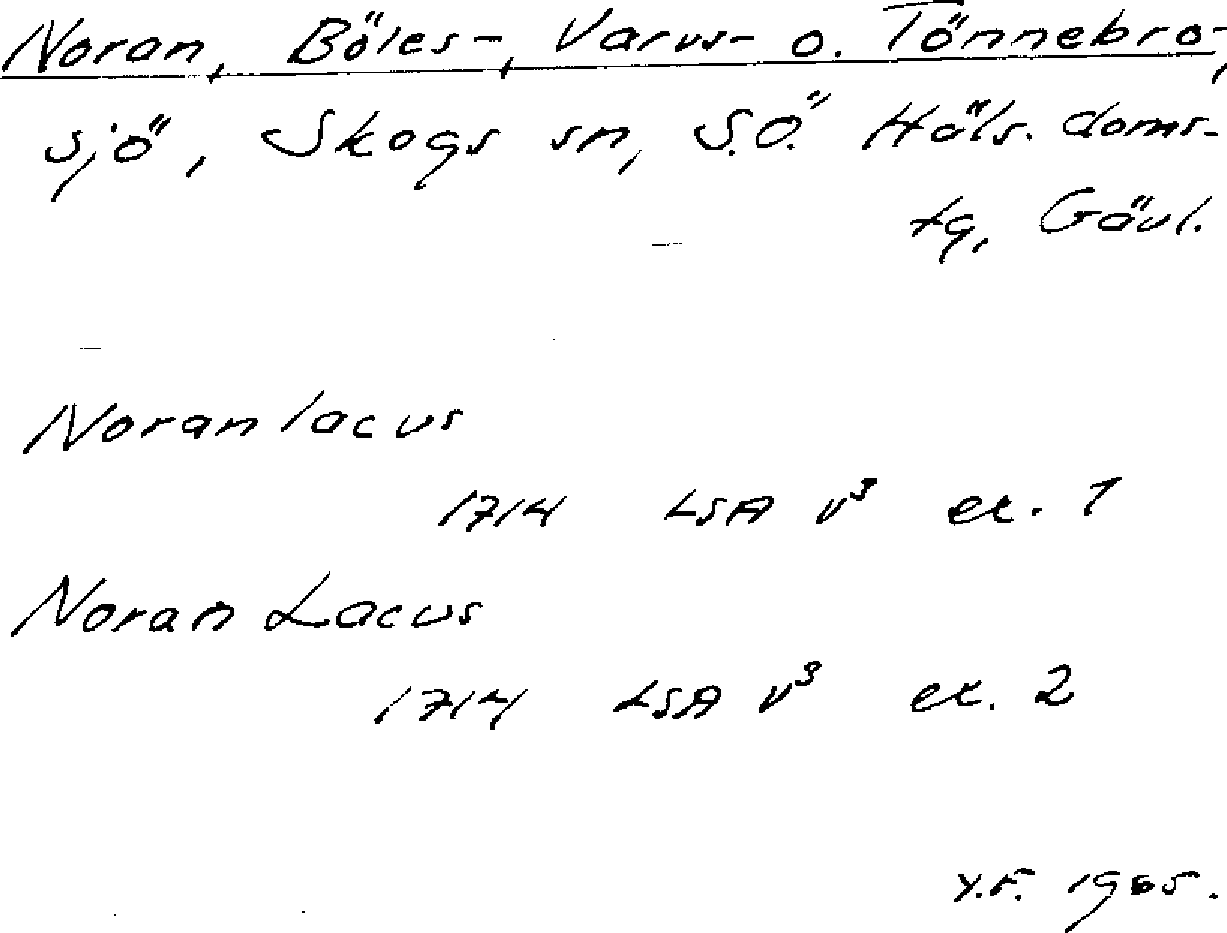 Noran, Böles-, Varvs- o. Tönnebro-,
sjö, Skogs sn, S.Ö. Häls. doms-
tg, Gävl.
Noran lacus
1714 LSA v³ ex. 1
Noran Lacus
1714 LSA v³ ex. 2
Y.F. 1965.